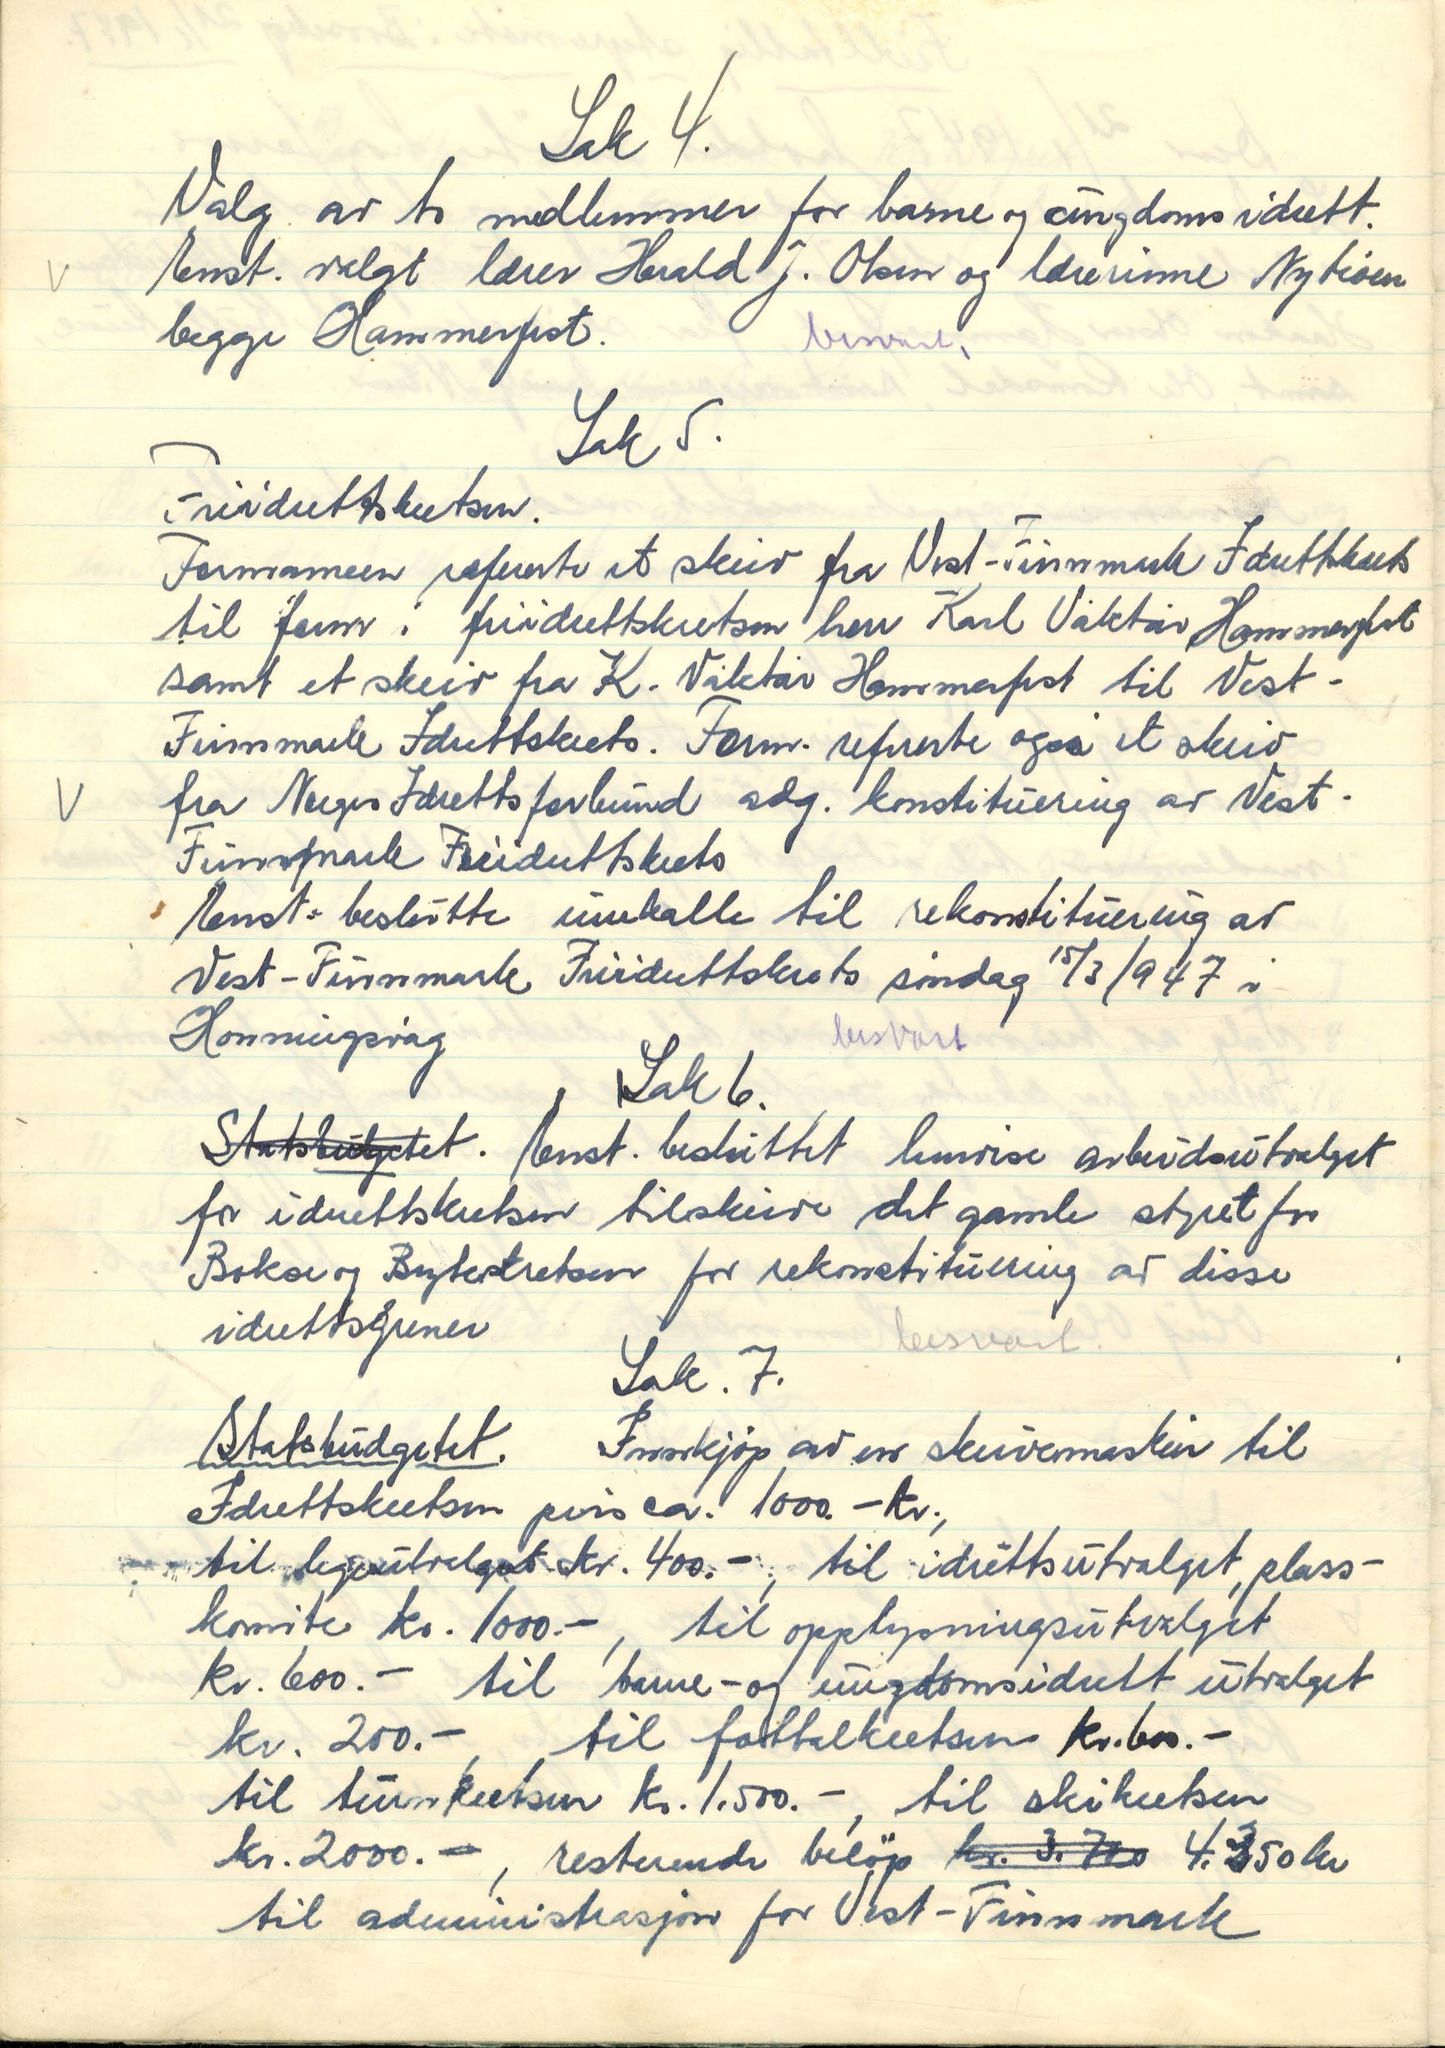 Sak 4.
Valg av to medlemmer for barne og ungdoms idrett.
V Enst. valgt lærer Harald J. Olsen og lærerinne Nytrøen
begge Hammerfest. besvart.
Sak 5.
Friidrettskretsen.
Formannen refererte et skriv fra Vest-Finnmark Idrettskrets
til form i friidrettskretsen herr Karl Viktår Hammerfest
samt et skriv fra K. Viktår Hammerfest til Vest-
Finnmark Idrettskrets. Form. refererte også et skriv
V fra Norges Idrettsforbund adg. konstituering av Vest-
Finnmark Friidrettskrets
Enst. beslutte innkalle til rekonstituering av
Vest-Finnmark Friidrettskrets søndag 15/3/1947 i
Honningsvåg besvart
Sak 6.
Statsbudgetet. Enst. besluttet henvise arbeidsutvalget
for idrettskretsen tilskrive det gamle styret for
Bokse og Brytekretsen for rekonstituering av disse
idrettsgrener besvart.
Sak. 7.
Statsbudgetet. Innkjøp av en skrivemaskin til
Idrettskretsen pris ca. 1000.- kr.,
til legeutvalget kr. 400.-, til idrettsutvalget, plass-
komite kr. 1000.-, til opplysningsutvalget
kr. 600.- til barne- og ungdomsidrett utvalget
kr. 200.-, til fotballkretsen kr. 600.-
til turnkretsen kr. 1.500.-, til skikretsen
kr. 2000.-, resterende beløp kr. 3.700 4.350 kr
til administrasjon for Vest-Finnmark